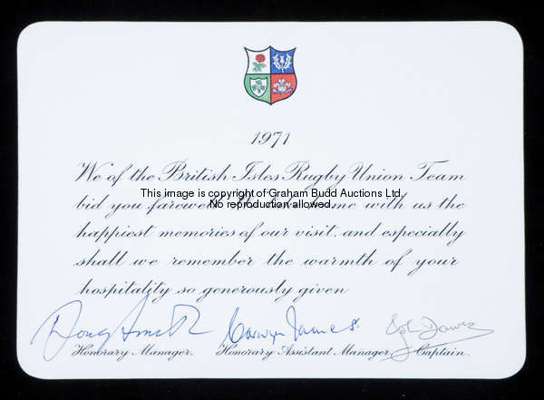 1971
We of the British Isles Rugby Union Team
This image is copyright of Graham Budd Auctions Ltd.
bid you farewell me with us the
No reproduction allowed.
happiest memories of our visit, and especially
shall we remember the warmth of your
hospitality so generously given
Doug Smith Carwyn James John Dawes
Honorary Manager. Honorary Assistant Manager Captain.